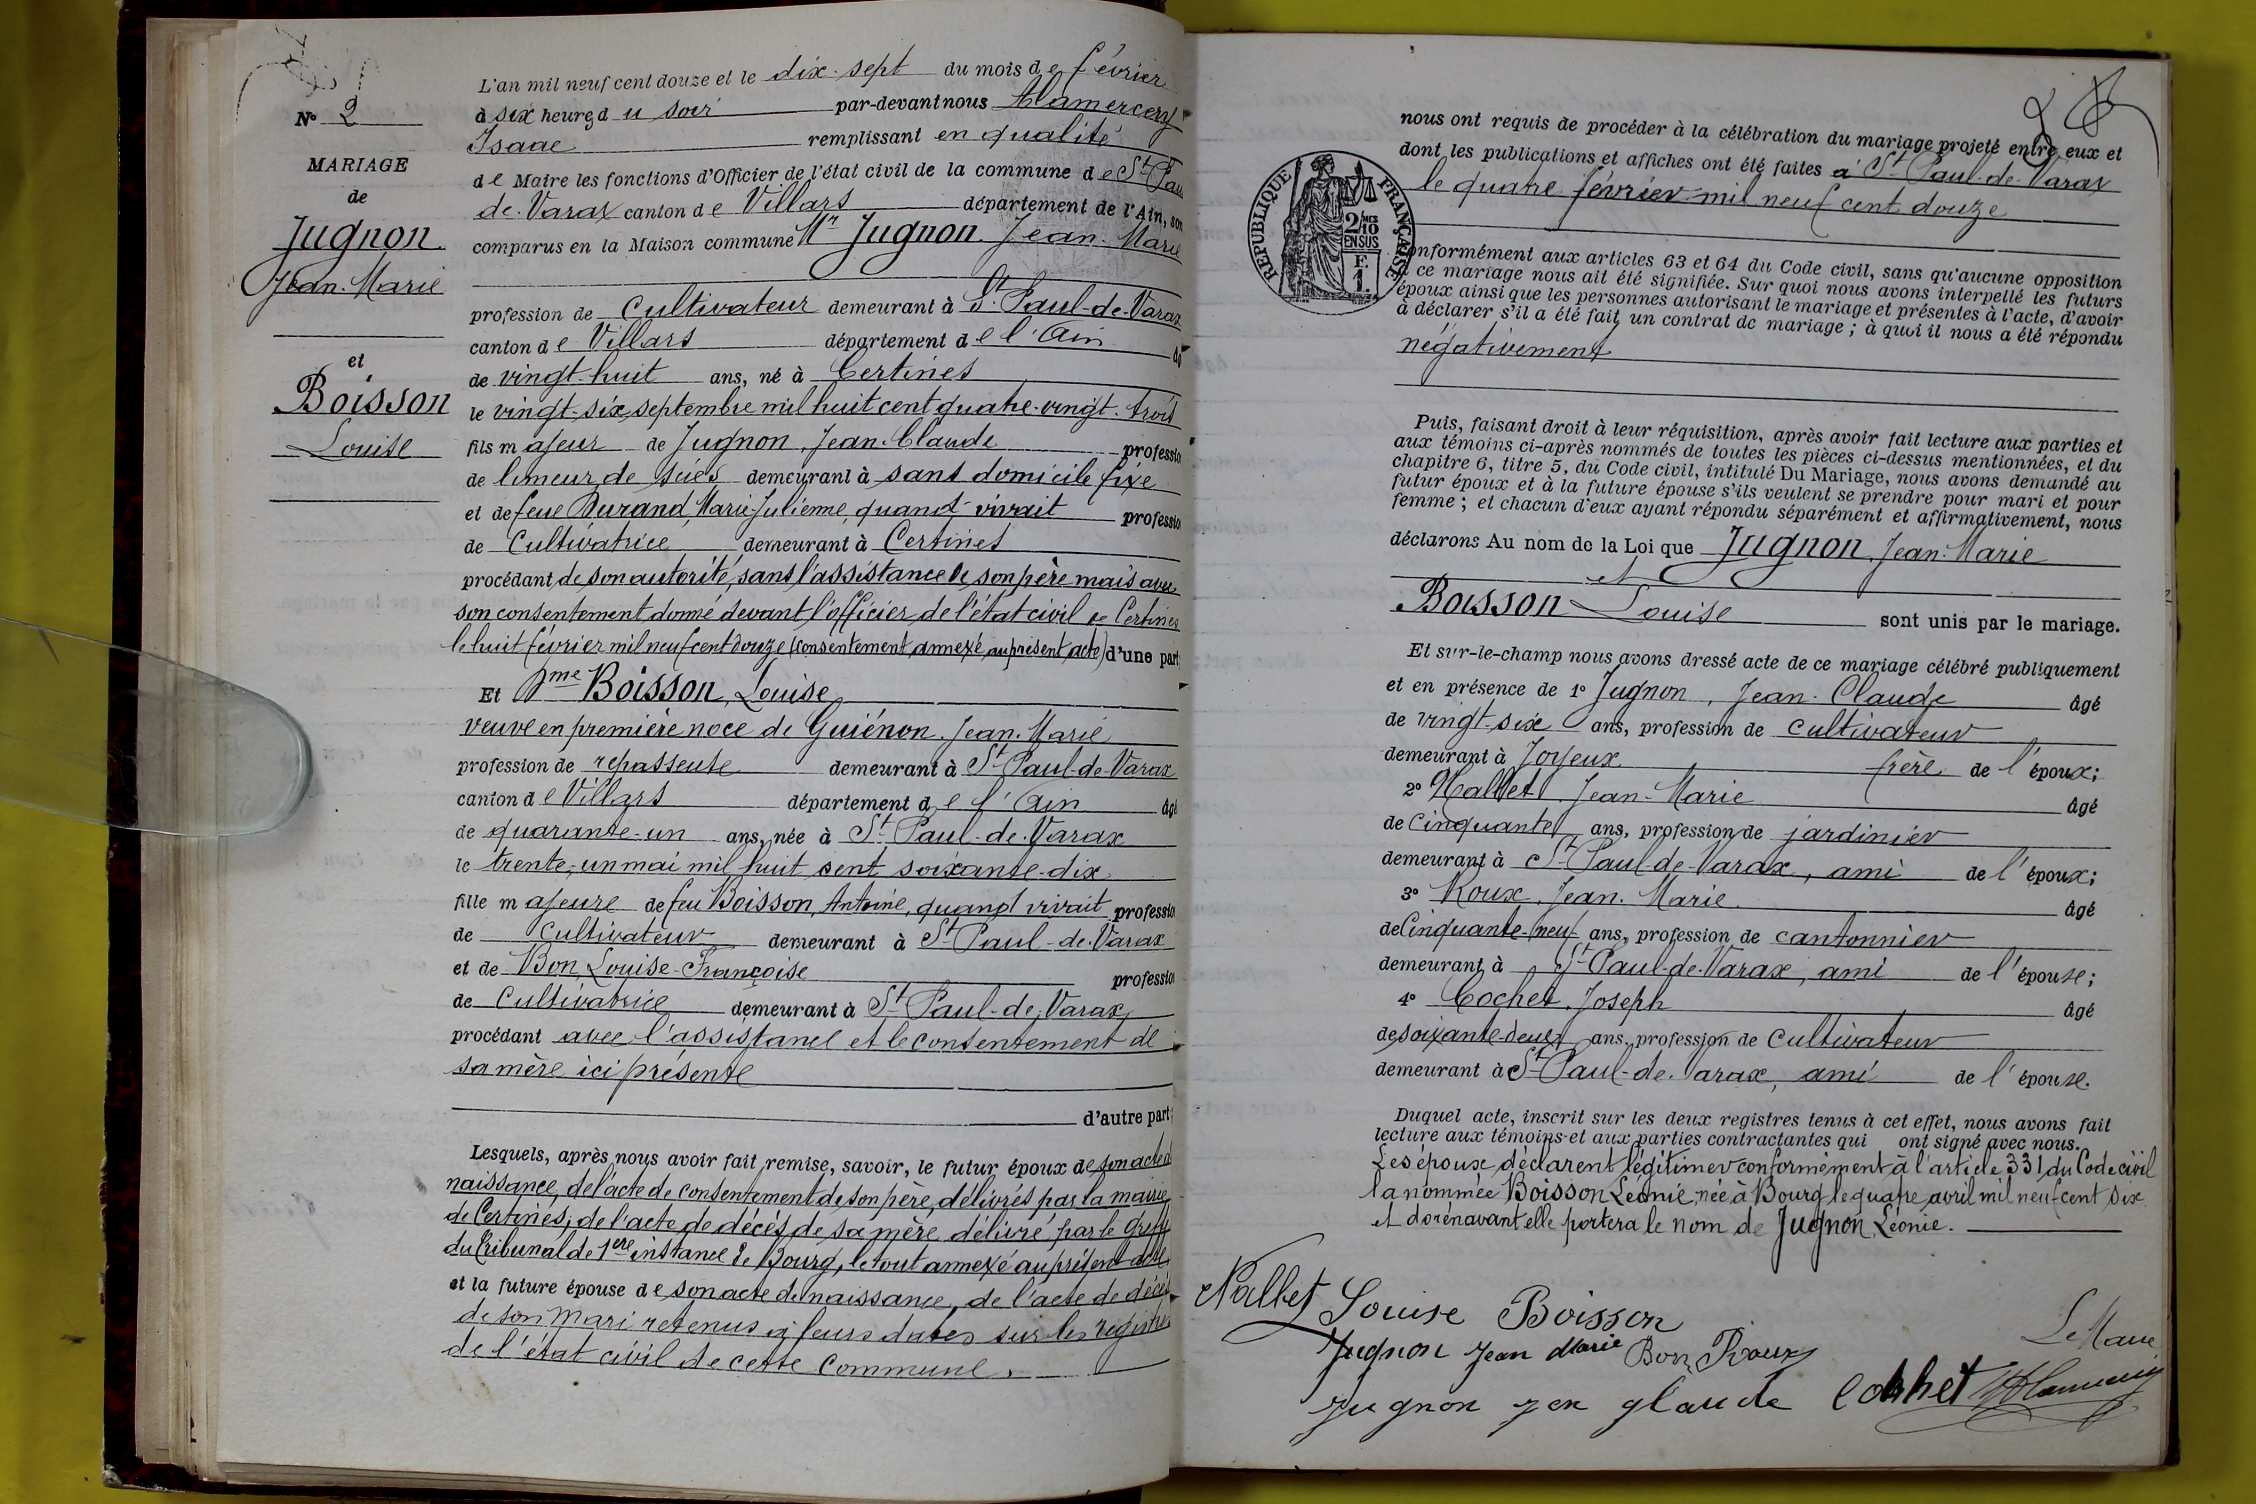 N° 2
MARIAGE
de
Jugnon
Jean-Marie
et
Boisson
Louise
L'an mil neuf cent douze et le dix-sept du mois de février
à six heures du soir par-devant nous Alamercery
Isaac remplissant en qualité
de Maire les fonctions d'Officier de l'état civil de la commune de St Paul
de-Varax canton de Villars département de l'Ain, son
comparus en la Maison commune Mr Jugnon Jean-Marie
profession de cultivateur demeurant à St Paul-de-Varax
canton de Villars département de l'Ain âg
de vingt-huit ans, né à Certines
le vingt-six septembre mil huit cent quatre-vingt-trois
fils majeur de Jugnon, Jean-Claude professio
de limeur de scies demeurant à sans domicile fixe
et de feue Durand, Marie-Julienne, quand vivait professio
de cultivatrice demeurant à Certines
procédant de son autorité, sans l'assistance de son père mais avec
son consentement donné devant l'officier de l'état civil de Certines
le huit février mil neuf cent douze (consentement annexé au présent acte) d'une part
Et Dme Boisson, Louise
veuve en première noce de Guiénon Jean-Marie
profession de repasseuse demeurant à St Paul-de-Varax
canton de Villars département de l'Ain âgé
de quarante-un ans, née à St Paul-de-Varax
le trente-un mai mil huit cent soixante-dix
fille majeure de feu Boisson, Antoine, quand vivait professio
de cultivateur demeurant à St Paul-de-Varax
et de Bon, Louise-Françoise profession
de cultivatrice demeurant à St Paul-de-Varax
procédant avec l'assistance et le consentement de
sa mère ici présente
d'autre part;
Lesquels, après nous avoir fait remise, savoir, le futur époux de son acte de
naissance, de l'acte de consentement de son père, délivrés par la mairie
de Certines; de l'acte de décès de sa mère délivré par le Greffe
du Tribunal de 1ère instance de Bourg, le tout annexé au présent acte,
et la future épouse de son acte de naissance, de l'acte de décès
de son mari retenus à leurs dates sur les registres
de l'état civil de cette commune.
nous ont requis de procéder à la célébration du mariage projeté entre eux et
dont les publications et affiches ont été faites à St Paul-de-Varax
le quatre février mil neuf cent douze
RÉPUBLIQUE FRANÇAISE
2/10
MES
EN SUS
F.
1.
onformément aux articles 63 et 64 du Code civil, sans qu'aucune opposition
à ce mariage nous ait été signifiée. Sur quoi nous avons interpellé les futurs
époux ainsi que les personnes autorisant le mariage et présentes à l'acte, d'avoir
à déclarer s'il a été fait un contrat de mariage; à quoi il nous a été répondu
négativement
Puis, faisant droit à leur réquisition, après avoir fait lecture aux parties et
aux témoins ci-après nommés de toutes les pièces ci-dessus mentionnées, et du
chapitre 6, titre 5, du Code civil, intitulé Du Mariage, nous avons demandé au
futur époux et à la future épouse s'ils veulent se prendre pour mari et pour
femme; et chacun d'eux ayant répondu séparément et affirmativement, nous
déclarons Au nom de la Loi que Jugnon, Jean-Marie
et
Boisson Louise sont unis par le mariage.
Et sur-le-champ nous avons dressé acte de ce mariage célébré publiquement
et en présence de 1° Jugnon, Jean-Claude âgé
de vingt-six ans, profession de cultivateur
demeurant à Joyeux frère de l'époux;
2° Nallet Jean-Marie âgé
de cinquante ans, profession de jardinier
demeurant à St Paul-de-Varax, ami de l'époux;
3° Roux Jean-Marie âgé
de Cinquante-neuf ans, profession de cantonnier
demeurant à St Paul-de-Varax, ami de l'épouse;
4° Cochet Joseph âgé
de soixante-deux ans, profession de cultivateur
demeurant à St Paul-de-Varax, ami de l'épouse.
Duquel acte, inscrit sur les deux registres tenus à cet effet, nous avons fait
lecture aux témoins et aux parties contractantes qui ont signé avec nous.
Les époux déclarent légitimer conformément à l'article 331 du Code civil
la nommée Boisson Léonie, née à Bourg le quatre avril mil neuf cent six
et dorénavant elle portera le nom de Jugnon Léonie.
Nallet Louise Boisson
Le Maire
Jugnon Jean Marie Bon Roux
Jugnon jen glaude Cochet